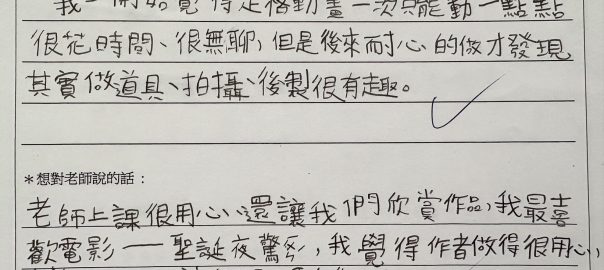 我一開始覺得定格動畫一次只能動一點點
很花時間、很無聊,但是後來耐心的做才發現
其實做道具、拍攝、後製很有趣。
*想對老師說的話:
老師上課很用心、還讓我們欣賞作品,我最喜
歡電影——聖誕夜驚魂,我覺得作者做得很用心,